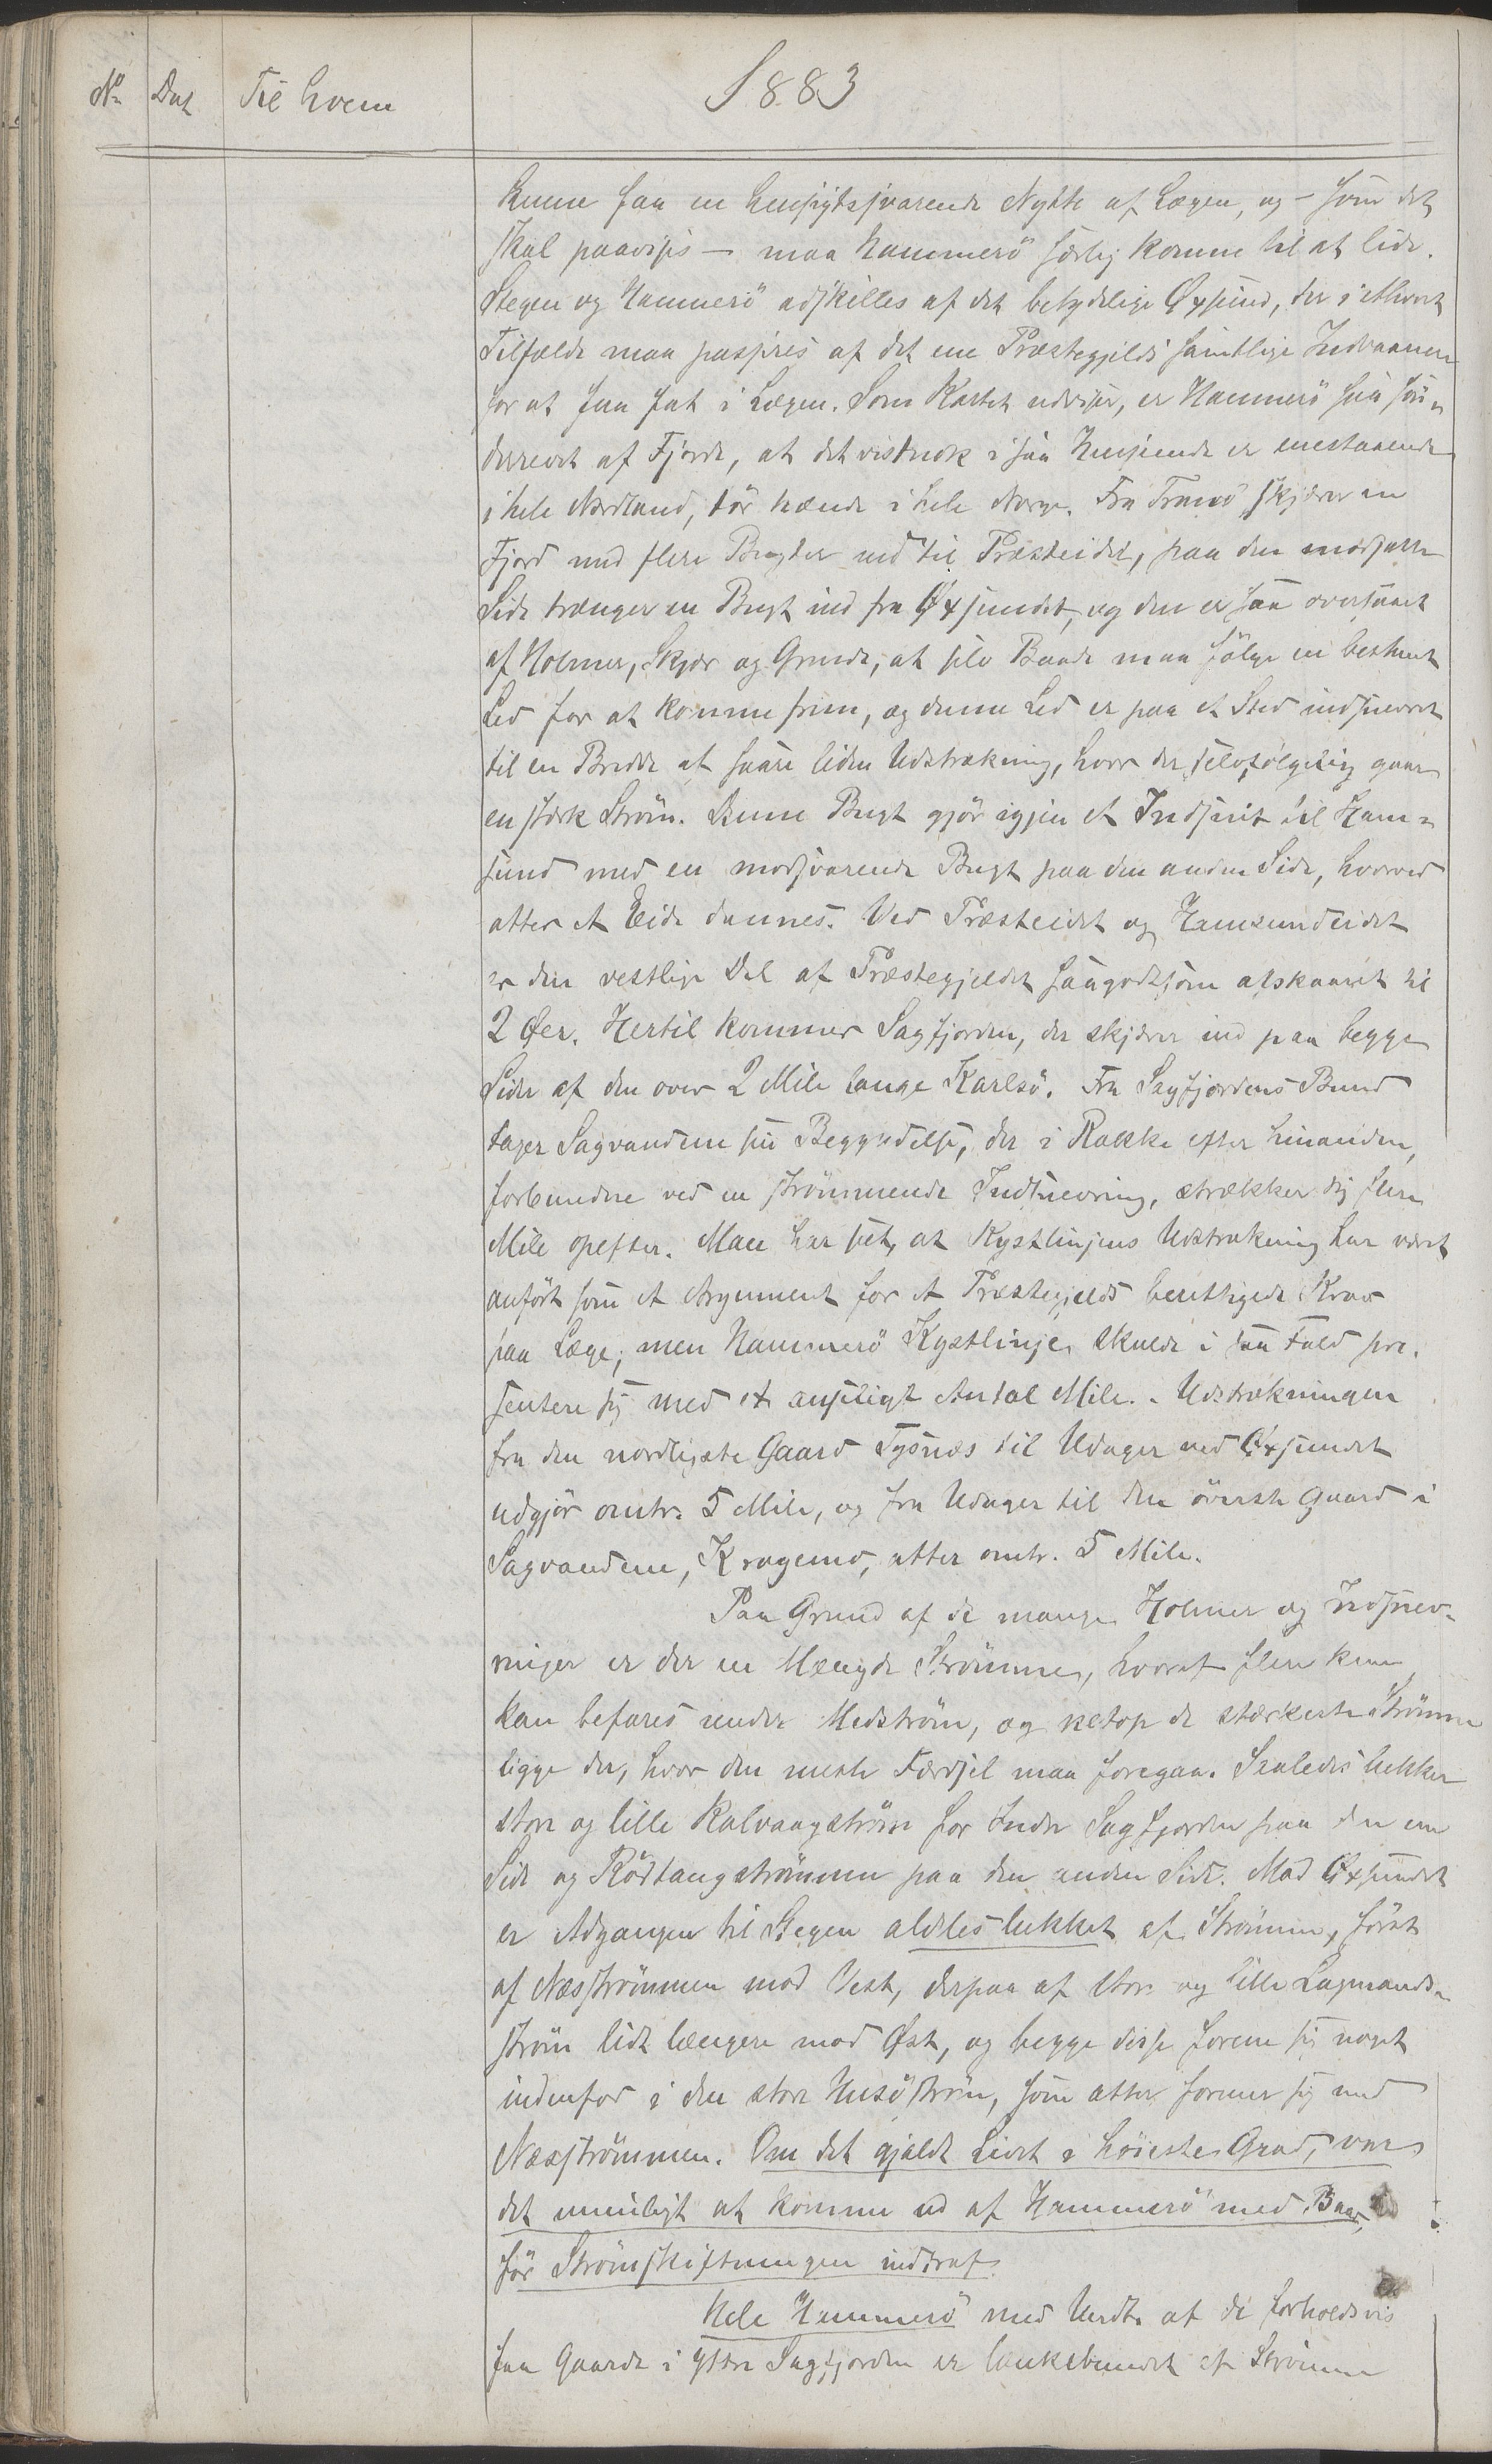 No Dat Til hvem 1883
kunne faa en hensigtssvarende Nytte af Lægen, og – som det
skal paavises – maa Hammerö særlig komme til at lide.
Stegen og Hammerö adskilles af det betydelige Øxsund, der i ethvert
Tilfælde maa passeres af det ene Præstegjelds samtlige Indvaanere
for at faa fat i Lægen. Som Kartet udviser, er Hammerö saa sön-
derrevet af Fjorde, at det vistnok i saa Henseende er enestaaende
i hele Nordland, tör hænde i hele Norge. Fra Tranö skjærer en
Fjord med flere Bugter ned til Præsteidet, paa den modsatte
Side trænger en Bugt ind fra Øxsundet, og den er saa oversaaet
af Holmer, Skjær og Grunde, at selv Baade maa fölge en bestemt
Led for at komme frem, og denne Led er paa et Sted indsnevret
til en Bredde af saare liden Udstrækning, hvor der selvfölgelig gaar
en stærk Ström. Denne Bugt gjör igjen et Indsnit til Ham-
sund med en modsvarende Bugt paa den anden Side, hvorved
atter et Eide dannes. Ved Præsteidet og Hamsundeidet
er den vestlige Del af Præstegjeldet saagodtsom afskaaret til
2 Øer. Hertil kommer Sagfjorden, der skjærer ind paa begge
Sider af den over 2 Mile lange Karlsö. Fra Sagfjordens Bund
tager Sagvandene sin Begyndelse, der i Række efter hinanden,
forbundne ved en strömmende Indsnevring, strækker sig flere
Mile opefter. Man har set, at Kystlinjens Udstrækning har været
anfört som et Argument for et Præstegjelds berettigede Krav
paa Læge; men Hammerö Kystlinje skulde i saa Fald præ-
sentere sig med et anseligt Antal Mile. Udstrækningen
fra den nordligste Gaard Tysnæs til Uduger ved Øxsundet
udgjör omtr. 5 Mile, og fra Uduger til den överste Gaard i
Sagvandene, Kragemo, atter omtr. 5 Mile.
Paa Grund af de mange Holmer og Indsnev-
ringer er der en Mængde Strömme, hvoraf flere kun
kan befares under Medström, og netop de stærkeste Strömme
ligge der, hvor den meste Færdsel maa foregaa. Saaledes lukker
store og lille Kalvaagström for Indre Sagfjorden paa den ene
Side og Rödtangströmmen paa den anden Side. Mod Øxsundet
er Adgangen til Stegen aldeles lukket af Strömme, först
af Næsströmmen mod Vest, derpaa af store og lille Lagmands-
ström lidt længere mod Øst, og begge disse forene sig noget
indenfor i den store Husöström, som atter forener sig med
Næsströmmen. Om det gjaldt Livet i höieste Grad, var
det umuligt at komme ud af Hammerö med Baad,
för Strömskiftningen indtraf.
Hele Hammerö med Undt. af de forholdsvis
faa Gaarde i ytre Sagfjorden er lænkebundet af Strömme